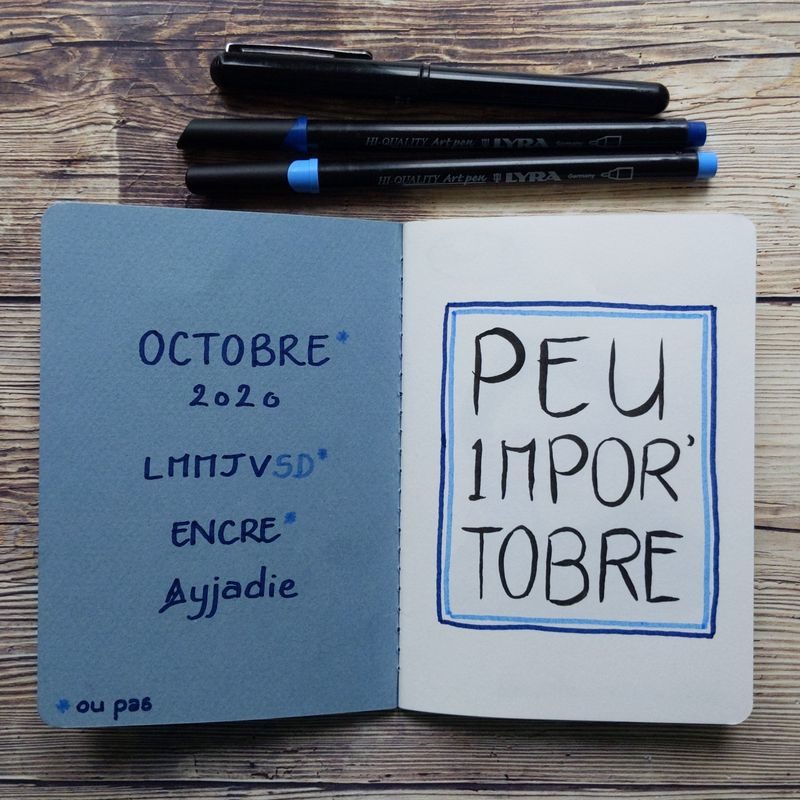 HI-QUALITY Art pen LYRA Germany
HI-QUALITY Art pen LYRA Germany
OCTOBRE*
2020
LMMJVSD*
ENCRE*
Ayjadie
* ou pas
PEU
IMPOR'
TOBRE